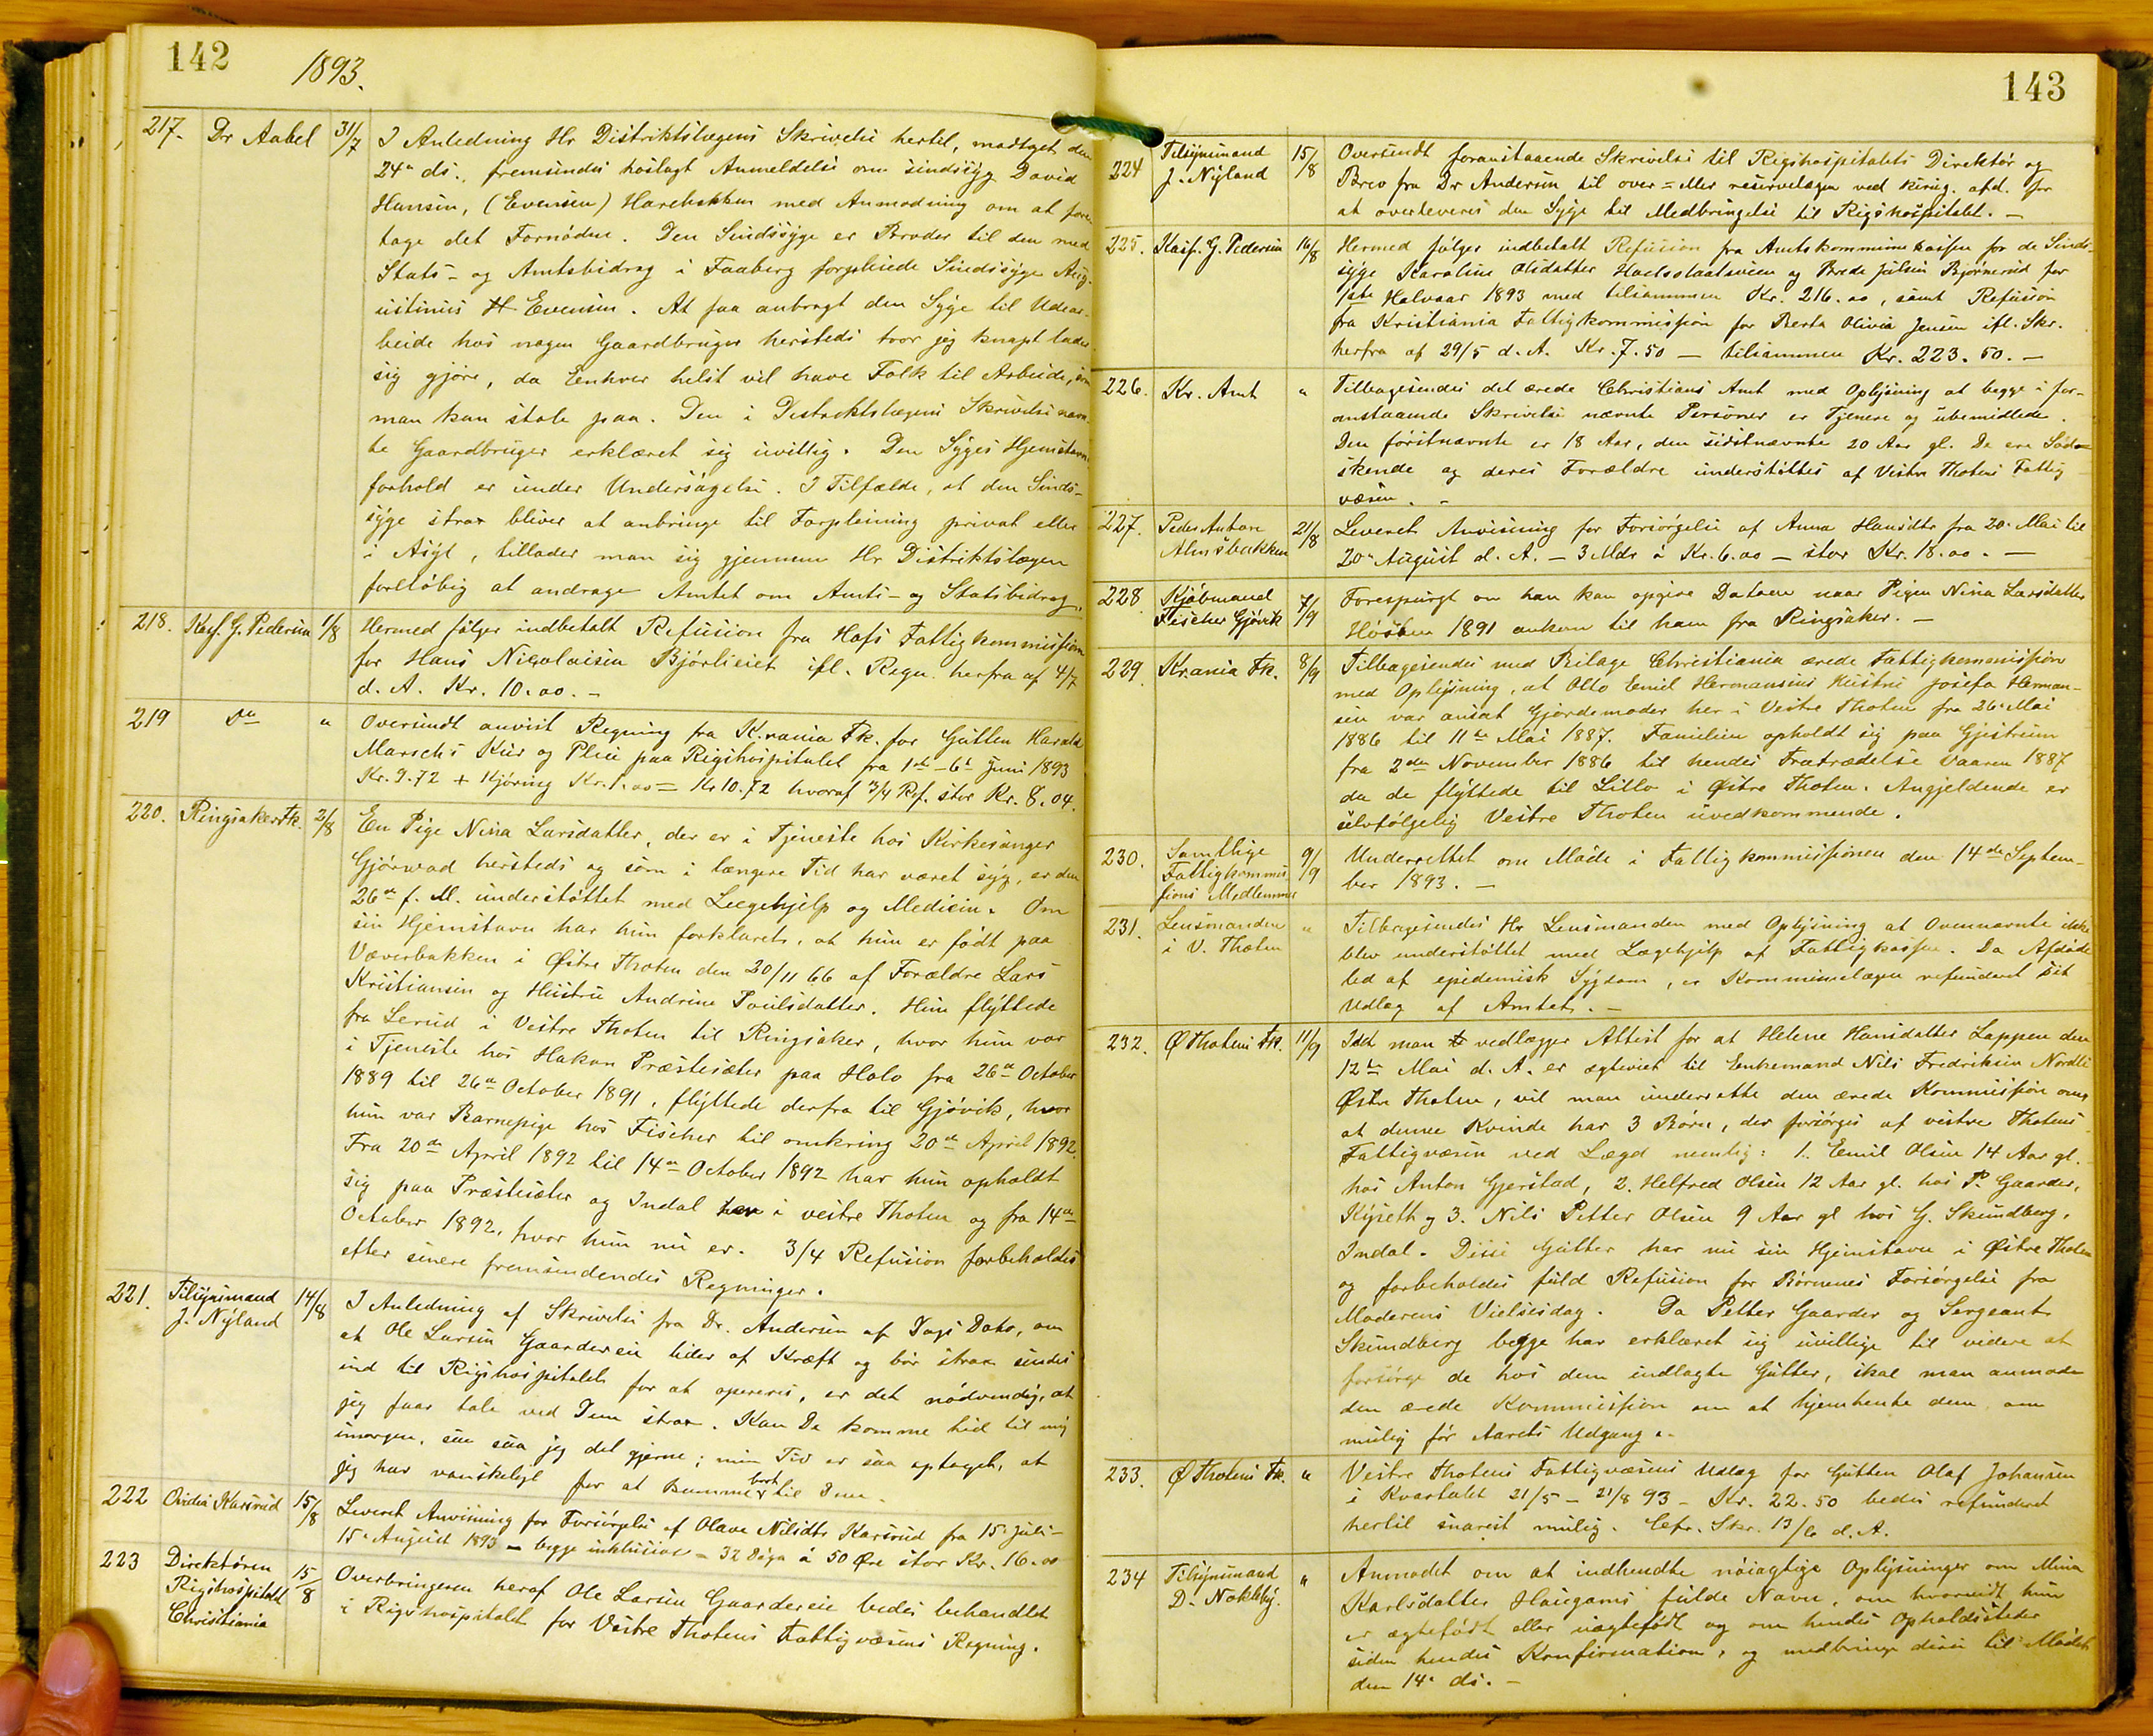 142
1893.
217. Dr Aabel 31/7 I Anledning Hr Distriktslægens Skrivelse hertil, modtaget den
24de ds., fremsendes hoslagt Anmeldelse om sindssyg David
Hansen, (Evensen) Harebakken med Anmodning om at fore-
tage det Fornødne. Den Sindssyge er Broder til den med
Stats- og Amtsbidrag i Faaberg forpleiede Sindssyge Aug-
ustinus H Evensen. At faa anbragt den Syge til Udear-
beide hos nogen Gaardbruger hersteds tror jeg knapt lader
sig gjøre, da Enhver helst vil have Folk til Arbeide, som
man kan stole paa. Den i Distriktslægens Skrivelse nævn-
te Gaardbruger erklæret sig uvillig. Den Syges Hjemstavns-
forhold er under Undersøgelse. I Tilfælde, at den Sinds-
syge strax bliver at anbringe til Forpleining privat eller
i Asyl, tillader man sig gjennem Hr Distriktslægen
foreløbig at andrage Amtet om Amts- og Statsbidrag.
218. Kasf. G. Pedersen 1/8 Hermed følger indbetalt Refusion fra Hofs Fattigkommission
for Hans Nicolaisen Bjørlieiet ifl. Regn. herfra af 4/7
d. A. Kr. 10.00. -
219 Do " Oversendt anvist Regning fra K.rania Fk. for Gutten Harald
Marschs Kur og Pleie paa Rigshospitalet fra 1ste - 6te Juni 1893
Kr. 9.72 + Kjøring Kr. 1.00 = Kr 10.72 hvoraf 3/4 Ref. stor Kr. 8.04.
220. Ringsakers Fk. 2/8 En Pige Nina Larsdatter, der er i Tjeneste hos Kirkesanger
Gjørwad hersteds og som i længere Tid har været syg, er den
26de f. M. understøttet med Lægehjelp og Medicin. Om
sin Hjemstavn har hun forklaret, at hun er født paa
Væverbakken i Østre Thoten den 20/11 66 af Forældre Lars
Kristiansen og Hustru Andrine Poulsdatter. Hun flyttede
fra Lerud i Vestre Thoten til Ringsaker, hvor hun var
i Tjeneste hos Hakon Præstesæter paa Holo fra 26de October
1889 til 26de October 1891, flyttede derfra til Gjøvik, hvor
hun var Barnepige hos Fischer til omkring 20de April 1892.
Fra 20de April 1892 til 14de October 1892 har hun opholdt
sig paa Præstesæter og Indal her i vestre Thoten og fra 14de
October 1892, hvor hun nu er. 3/4 Refusion forbeholdes
efter senere fremsendendes Regninger.
221. Tilsynsmand J. Nyland 14/8 I Anledning af Skrivelse fra Dr. Andersen af Dags Dato, om
at Ole Larsen Gaardereie lider af Kræft og bør strax sendes
ind til Rigshospitalet for at opereres, er det nødvendig, at
jeg faar tale ved Dem strax. Kan De komme hid til mig
imorgen, saa saa jeg det gjerne; min Tid er saa optaget, at
jeg har vanskeligt for at komme bort til Dem.
222 Ovidia Karsrud 15/8 Leveret Anvisning for Forsørgelse af Olave Nilsdtr Karsrud fra 15de Juli -
15de August 1893 - begge inklusive - 32 Døgn á 50 Øre stor Kr. 16.00
223 Direktøren Rigshospitalet Christiania 15/8 Overbringeren heraf Ole Larsen Gaardereie bedes behandlet
i Rigshospitalet for Vestre Thotens Fattigvæsens Regning.
143
224 Tilsynsmand J. Nyland 15/8 Oversendt foranstaaende Skrivelse til Rigshospitalets Direktør og
Brev fra Dr Andersen til over = eller reservelægen ved kirug. afd. for
at overleveres den Syge til Medbringelse til Rigshospitalet. -
225. Kasf. G. Pedersen 16/8 Hermed følger indbetalt Refusion fra Amtskommunekassen for de Sinds-
syge Karoline Olsdatter Haelsstaatsveen og Brede Julsen Bjørnerud for
1ste Halvaar 1893 med tilsammen Kr. 216.00, samt Refusion
fra Kristiania Fattigkommission for Berta Olivia Jensen ifl. Skr.
herfra af 29/5 d. A. Kr. 7.50 - tilsammen Kr. 223.50. -
226. Kr. Amt " Tilbagesendes det ærede Christians Amt med Oplysning at begge i for-
anstaaende Skrivelse nævnte Personer er Tjenere og ubemidlede.
Den førstnævnte er 18 Aar, den sidstnævnte 20 Aar gl. De ere Søds-
skende og deres Forældre understøttes af Vestre Thotens Fattig-
væsen. -
227. Peder Antore Almsbakken 21/8 Leveret Anvisning for Forsørgelse af Anna Hansdtr fra 20de Mai til
20de August d. A. - 3 Mdr á Kr. 6.00 - stor Kr. 18.00. -
228. Kjøbmand Fischer Gjøvik 7/9 Forespurgt om han kan opgive Datoen naar Pigen Nina Larsdatter
Høsten 1891 ankom til ham fra Ringsaker. -
229. Kr.ania Fk. 8/9 Tilbagesendes med Bilage Christiania ærede Fattigkommission
med Oplysning, at Otto Emil Hermansens Hustru Josefa Herman-
sen var ansat Gjordemoder her i Vestre Thoten fra 26de Mai
1886 til 11te Mai 1887. Familien opholdt sig paa Gjestrum
fra 2den November 1886 til hendes Fratrædelse Vaaren 1887
da de flyttede til Lillo i Østre Thoten. Angjeldende er
selvfølgelig Vestre Thoten uvedkommende.
230. Samtlige Fattigkommissions Medlemmer 9/9 Underrettet om Møde i Fattigkommissionen den 14de Septem-
ber 1893. -
231. Lensmanden i V. Thoten " Tilbagesendes Hr Lensmanden med Oplysning at Ovennævnte ikke
blev understøttet med Lægehjelp af Fattigkassen. Da Afdøde
led af epidemisk Sygdom, er Kommunelægen refunderet sit
Udlæg af Amtet. -
232. Ø Thotens Fk. 11/9 Idet man vedlægger Attest for at Helene Hansdatter Lappen den
12te Mai d. A. er ægteviet til Enkemand Nils Fredriksen Nordli
Østre Thoten, vil man underrette den ærede Kommission om,
at denne Kvinde har 3 Børn, der forsørges af vestre Thotens
Fattigvæsen ved Lægd nemlig: 1. Emil Olsen 14 Aar gl.
hos Anton Gjerstad, 2. Helfred Olsen 12 Aar gl. hos P. Gaarder,
Kyseth og 3. Nils Petter Olsen 9 Aar gl hos G. Skundberg,
Indal. Disse Gutter har nu sin Hjemstavn i Østre Thoten
og forbeholdes fuld Refusion for Børnenes Forsørgelse fra
Moderens Vielsesdag. Da Petter Gaarder og Sergeant
Skundberg begge har erklæret sig uvillige til videre at
forsørge de hos dem indlagte Gutter, skal man anmode
den ærede Kommission om at hjemhente dem, om
mulig før Aarets Udgang. -
233. Ø Thotens Fk. " Vestre Thotens Fattigvæsens Udlæg for Gutten Olaf Johansen
i Kvartalet 21/5 - 21/8 93 - Kr. 22.50 bedes refunderet
hertil snarest mulig. Cfr. Skr. 13/6 d. A.
234 Tilsynsmand D. Nøkleby. " Anmodet om at indhendte nøiagtige Oplysninger om Mina
Karlsdatter Haugams fulde Navn, om hvorvidt hun
er ægtefødt eller uægtefødt og om hendes Opholdssteder
siden hendes Konfirmation, og medbringe disse til Mødet
den 14de ds. -